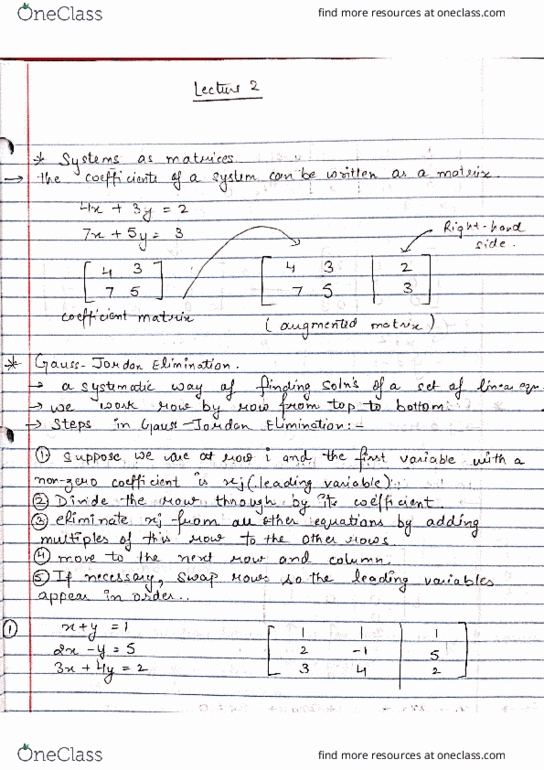 OneClass find more resources at oneclass.com
Lecture 2
* Systems as matrices
→ the coefficients of a system can be written as a matrix.
4x + 3y = 2
7x + 5y = 3
Right-hand
side.
[ 4 3 ] [ 4 3 | 2 ]
[ 7 5 ] [ 7 5 | 3 ]
coefficient matrix
(augmented matrix)
* Gauss-Jordan Elimination.
→ a systematic way of finding soln's of a set of linear eqn
→ we work row by row from top to bottom.
→ Steps in Gauss-Jordan Elimination:-
① suppose we are at row i and the first variable with a
non-zero coefficient is xj (leading variable).
② Divide the row through by its coefficient
③ eliminate xj from all other equations by adding
multiples of this row to the other rows.
④ move to the next row and column.
⑤ If necessary, swap rows so the leading variables
appear in order..
① x+y = 1 [ 1 1 | 1 ]
2x - y = 5 [ 2 -1 | 5 ]
3x + 4y = 2 [ 3 4 | 2 ]
OneClass find more resources at oneclass.com